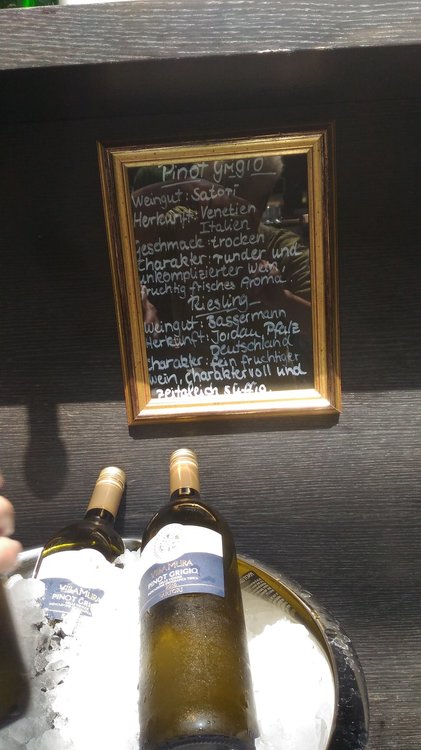 Pinot grigio
Weingut: Satori
Herkunft: Venetien
Italien
Geschmack: trocken
Charakter: runder und
unkomplizierter Wein,
fruchtig frisches Aroma.
Riesling
Weingut: Bassermann
Herkunft: Jordan Pfalz
Deutschland
Charakter: fein fruchtiger
wein, charaktervoll und
zeitgleich süffig.
VILLA MURA
PINOT GRIGIO
VILLA MURA
PINOT GRIGIO
SARTORI